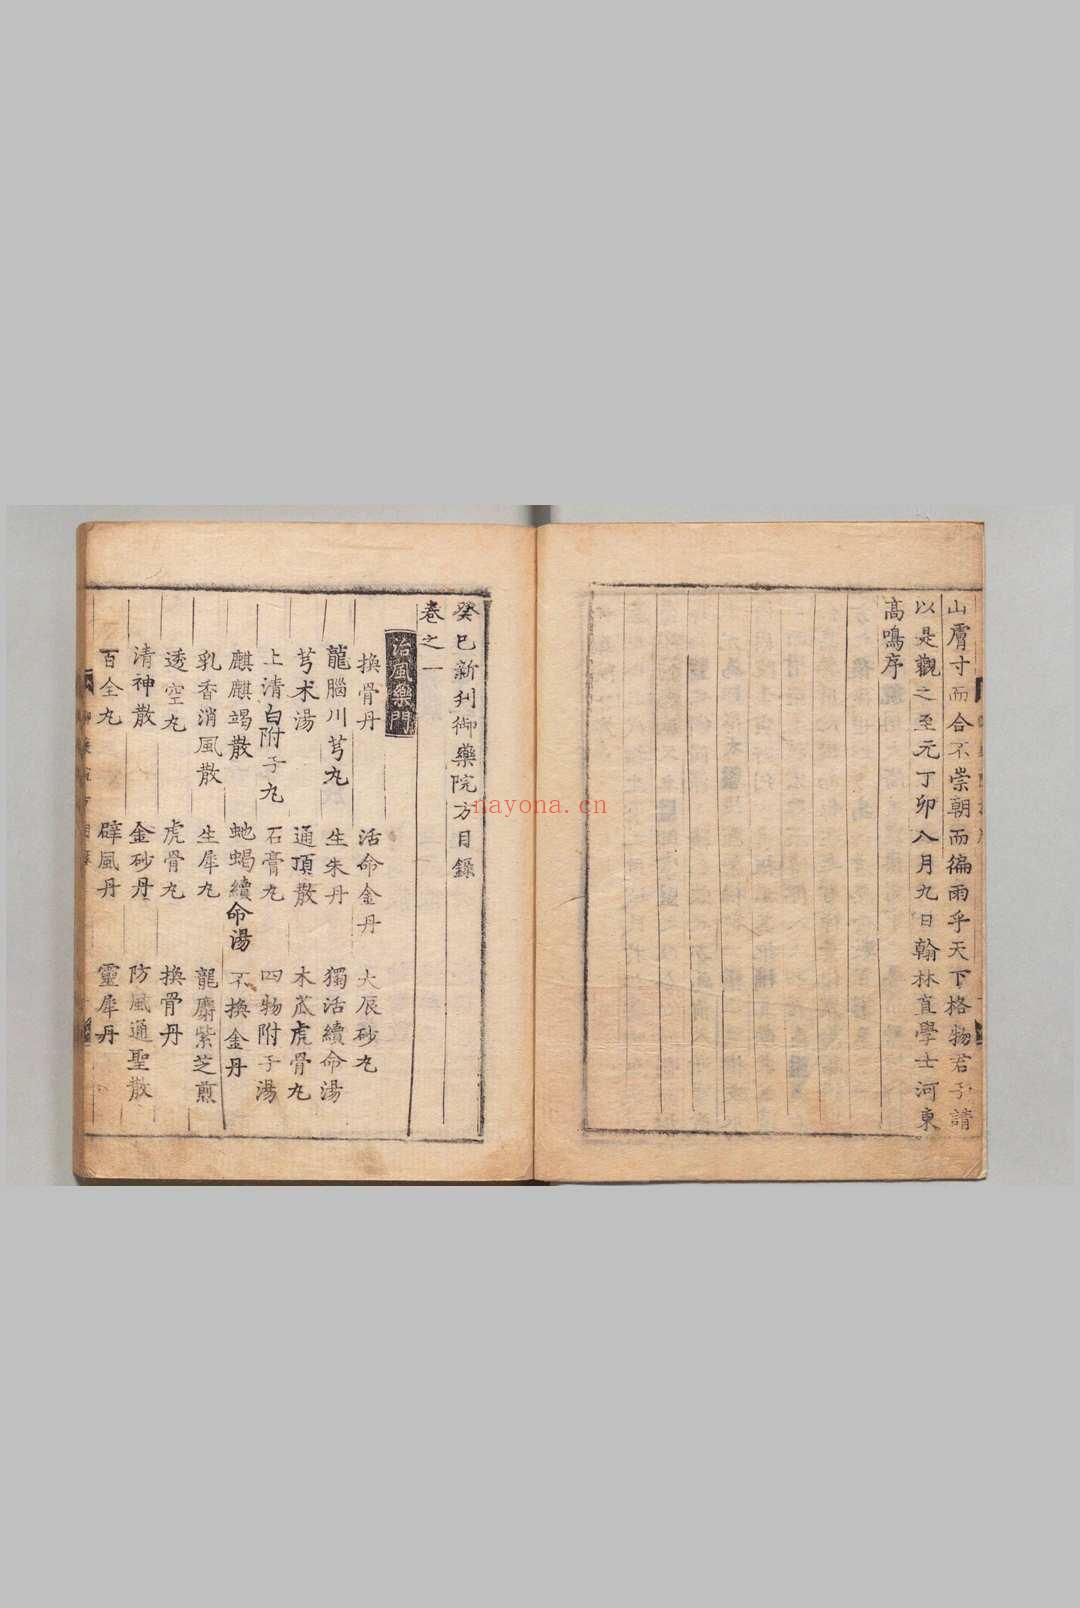 山膚寸而合不崇朝而徧雨乎天下格物君子請
以是觀之至元丁卯八月九日翰林直學士河東
高鳴序
癸巳新刋御藥院方目錄
卷之一
治風藥門
換骨丹 活命金丹 大辰砂丸
龍腦川芎丸 生朱丹 獨活續命湯
芎术湯 通頂散 木瓜虎骨丸
上清白附子丸 石膏丸 四物附子湯
麒麟竭散 虵蝎續命湯 不換金丹
乳香消風散 生犀丸 龍麝紫芝煎
透空丸 虎骨丸 換骨丹
清神散 金砂丹 防風通聖散
百全丸 辟風丹 靈犀丹
nayona.cn